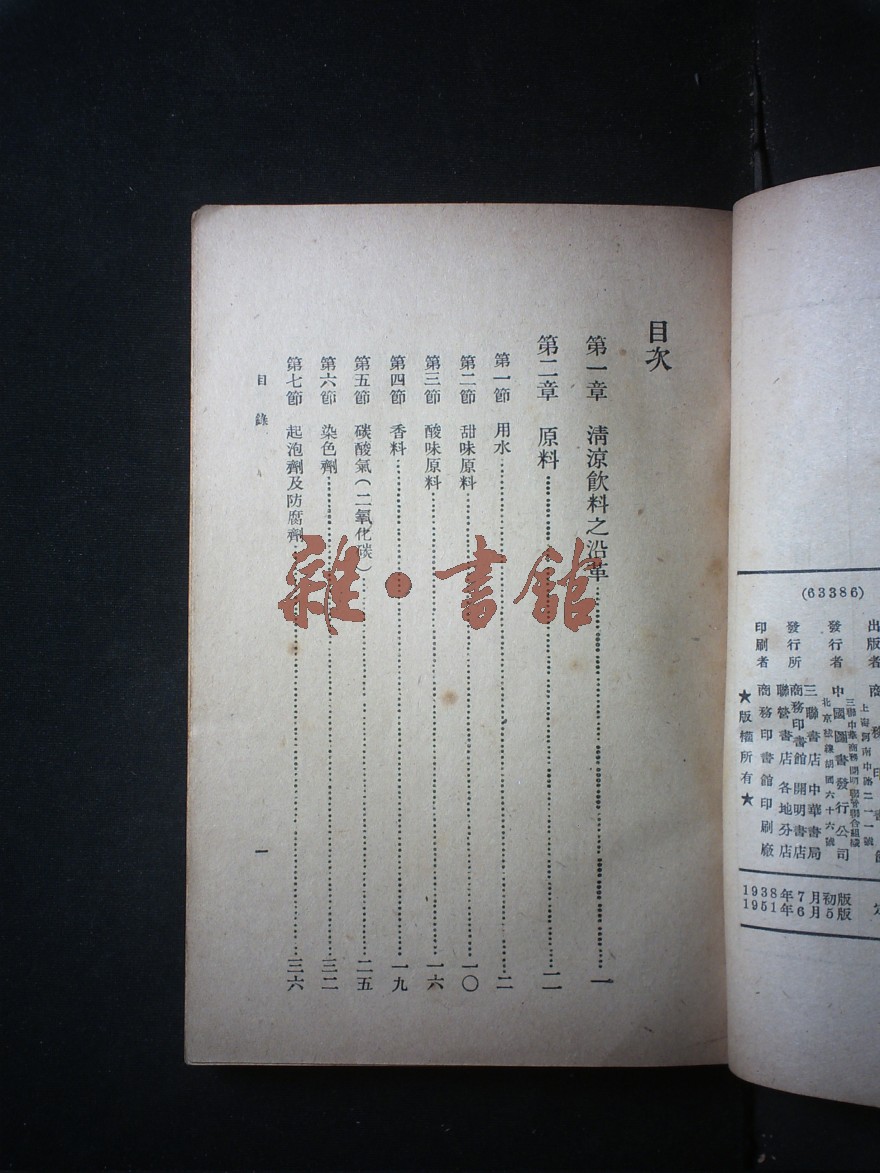 目次
第一章　清涼飲料之沿革……一
第二章　原料……二
第一節　用水……二
第二節　甜味原料……一〇
第三節　酸味原料……一六
第四節　香料……一九
第五節　碳酸氣(二氧化碳)……二五
第六節　染色劑……三二
第七節　起泡劑及防腐劑……三六
目錄
一
雜·書館
(63386)
出版者　商務印書館
上海河南中路二一一號
發行者　中國圖書發行公司
三聯中華商務開明聯營聯合組織
北京絨線胡同六十六號
發行所　三聯書店　中華書局
商務印書館　開明書店
聯營書店　各地分店
印刷者　商務印書館印刷廠
★版權所有★
1938年7月初版
1951年6月5版